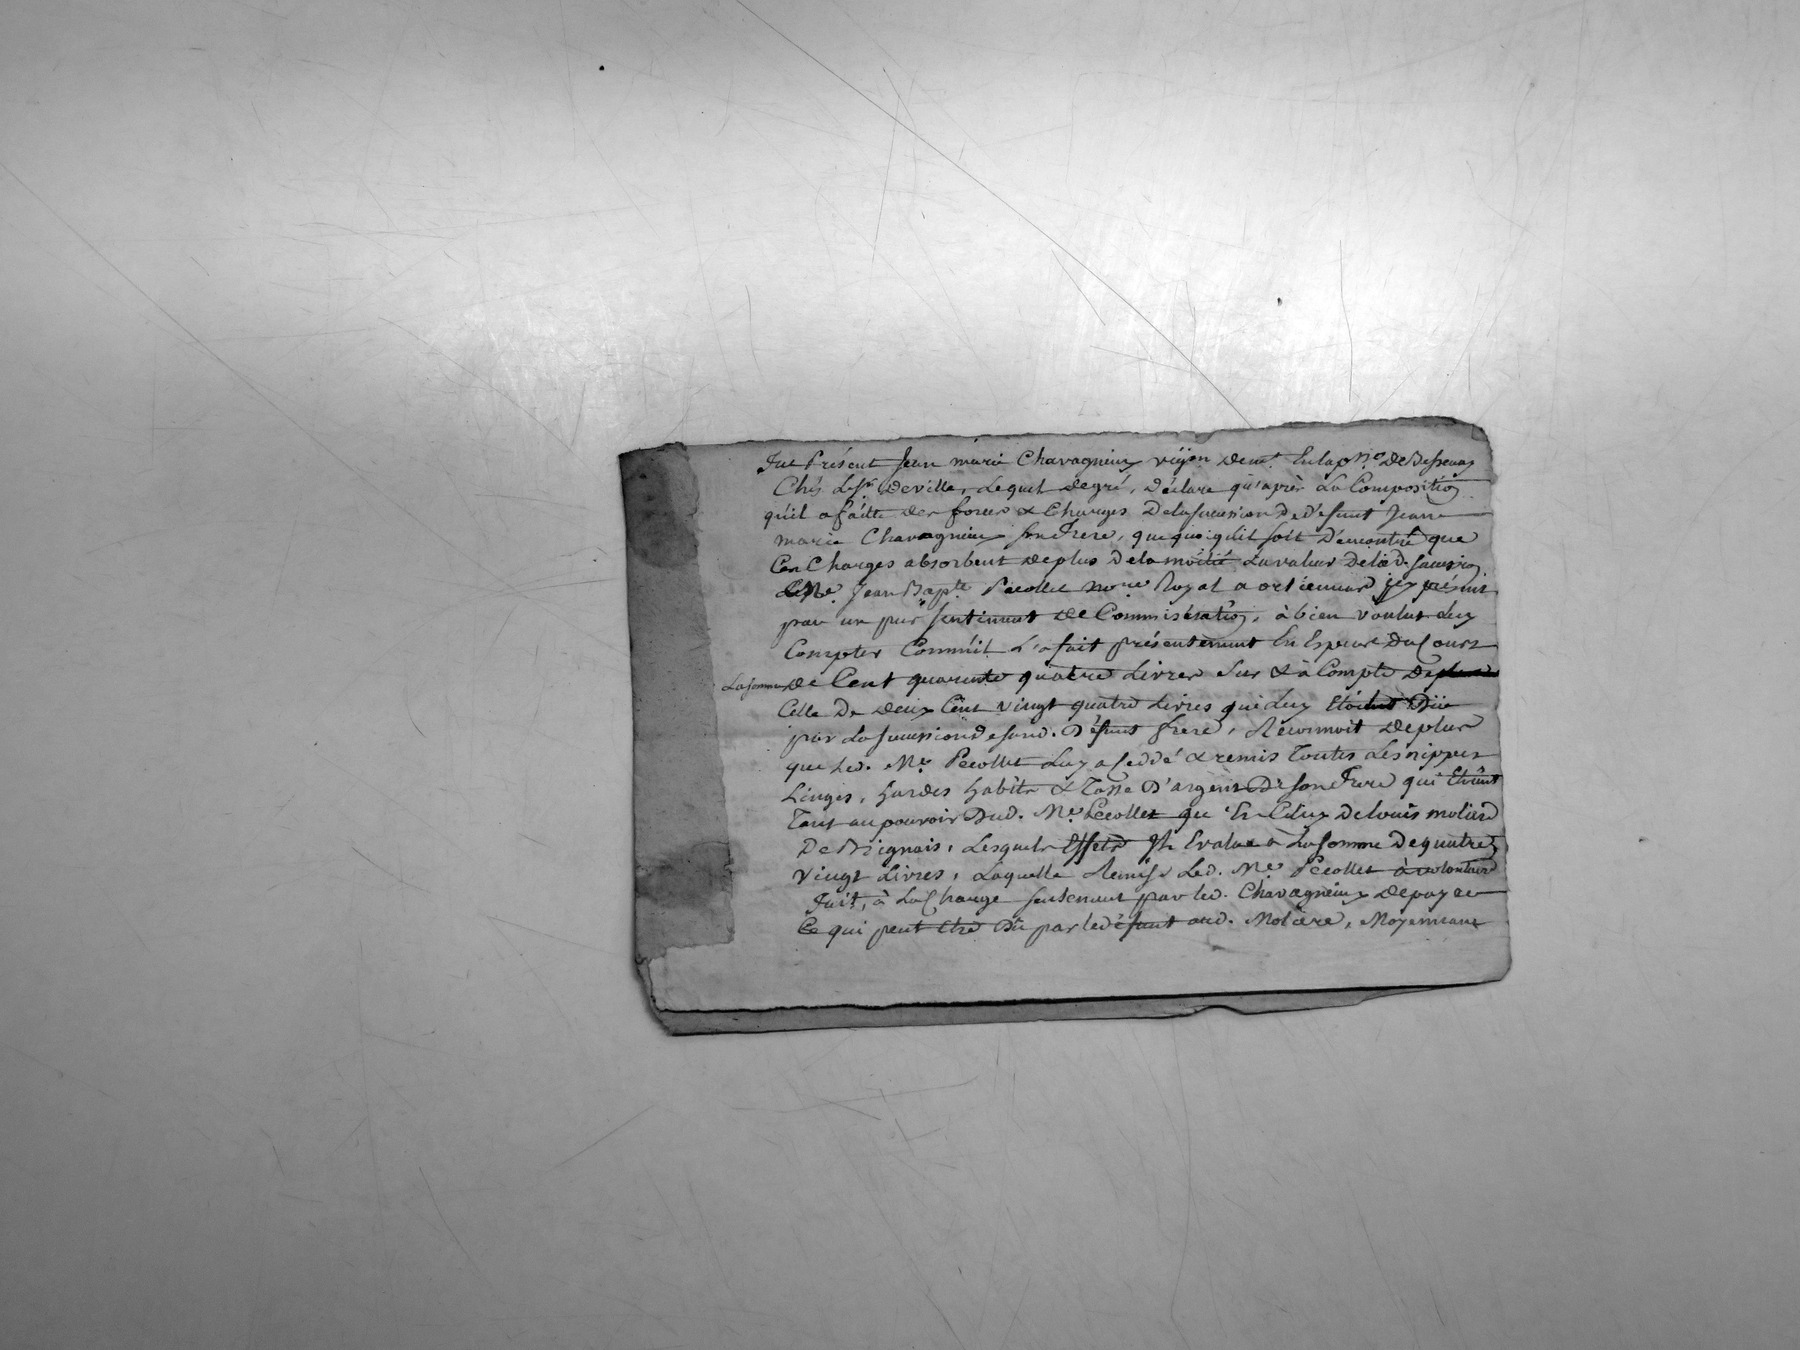 Fut Présent Jean marie Chavagnieux vigñon demt. En la psse. De Bessenay
Chés Le Sr. Deville, Lequel de gré, Déclare qu'après La Composition
qu'il a faitte des forces & Charges De la succession De Défunt Jean
marie Chavagnieux son Frere, quoiqu'il soit Démontré que
Ces Charges absorbent de plus De la moitié La valeur De lad. succession
Me. Jean Bapte. Pecollet nore. Royal a orliennas icy présent
par un pur sentiment de Commisération, à bien voulut Luy
Compter Comm'il L'a fait présentement En Espèces Du Cours
La somme de Cent quarente quatre Livres Sur & à Compte De
Celle De deux Cent vingt quatre Livres qui Luy Etoient Düe
par La succession de sond. Défunt frere, Reconnoit de plus
que Led. Me. Pecollet Luy a seddé & remis Toutes Les nippes
Linges, hardes habits & Tasse D'argent De son Frere qui Etoient
Tant au pouvoir Dud. Me. Pecollet qu'En Celuy De Louis moliere
De Brignais, Lesquels Effets Ils Evalue à La somme De quatre
vingt Livres, Laquelle Remise Led. Me. Pecollet à volontiers
Fait, à La Charge seulement par led. Chavagnieux de payer
Ce qui peut Etre Dû par le défunt aud. Moliere, Moyennant